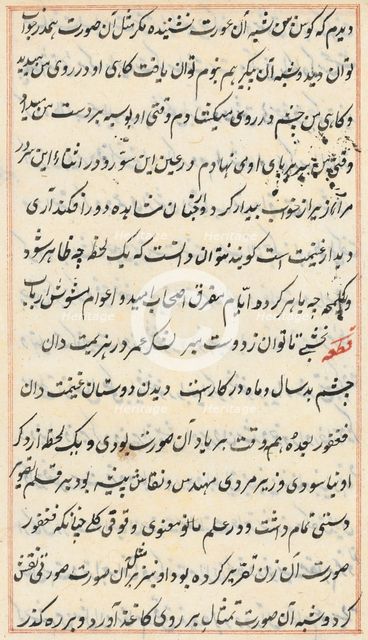 دیدم که کوس من شبه آن عورت نشنیده مگر مثل آن صورت همدر خواب
توان دید و شبه آن پیکر هم بنوم توان یافت گاهی او در روی من میدید
و گاهی من چشم در روی او میکشادم وقتی او بوسه بر دست من میداد
وقتی من سر بر پای او می نهادم در عین این سور و در اثناء این سرور
مرا از خواب بیدار کرد و از چنان مشاهده دور افکند آری
دیدار غنیمت است کویند نتوان دانست که یک لحظه چه ظاهر شود
و یک لمحه چه باهر گردد ایام مفرق اصحاب امید و اعوام مشوش ارباب
قطعه نخشبی تا توان ز دوست مبر لشکر عمر در هزیمت دان
چشم بد سال و ماه در کارست دیدن دوستان غنیمت دان
فغفور بعده همه وقت بر یاد آن صورت بودی و یک لحظه از ذکر
او نیاسودی وزیر مردی مهندس و نقاش پیشه بود بر قلم تصویر
دستی تمام داشت و در علم مانو معنوی و قوفی کلی چنانکه فغفور
صورت آن زن تقریر کرده بود او نیز بر مثل آن صورت صورتی نقش
کرد و شبه آن صورت تمثال بر روی کاغذ آورد و بر ره گذر
Heritage
Heritage
Heritage
Heritage
Heritage